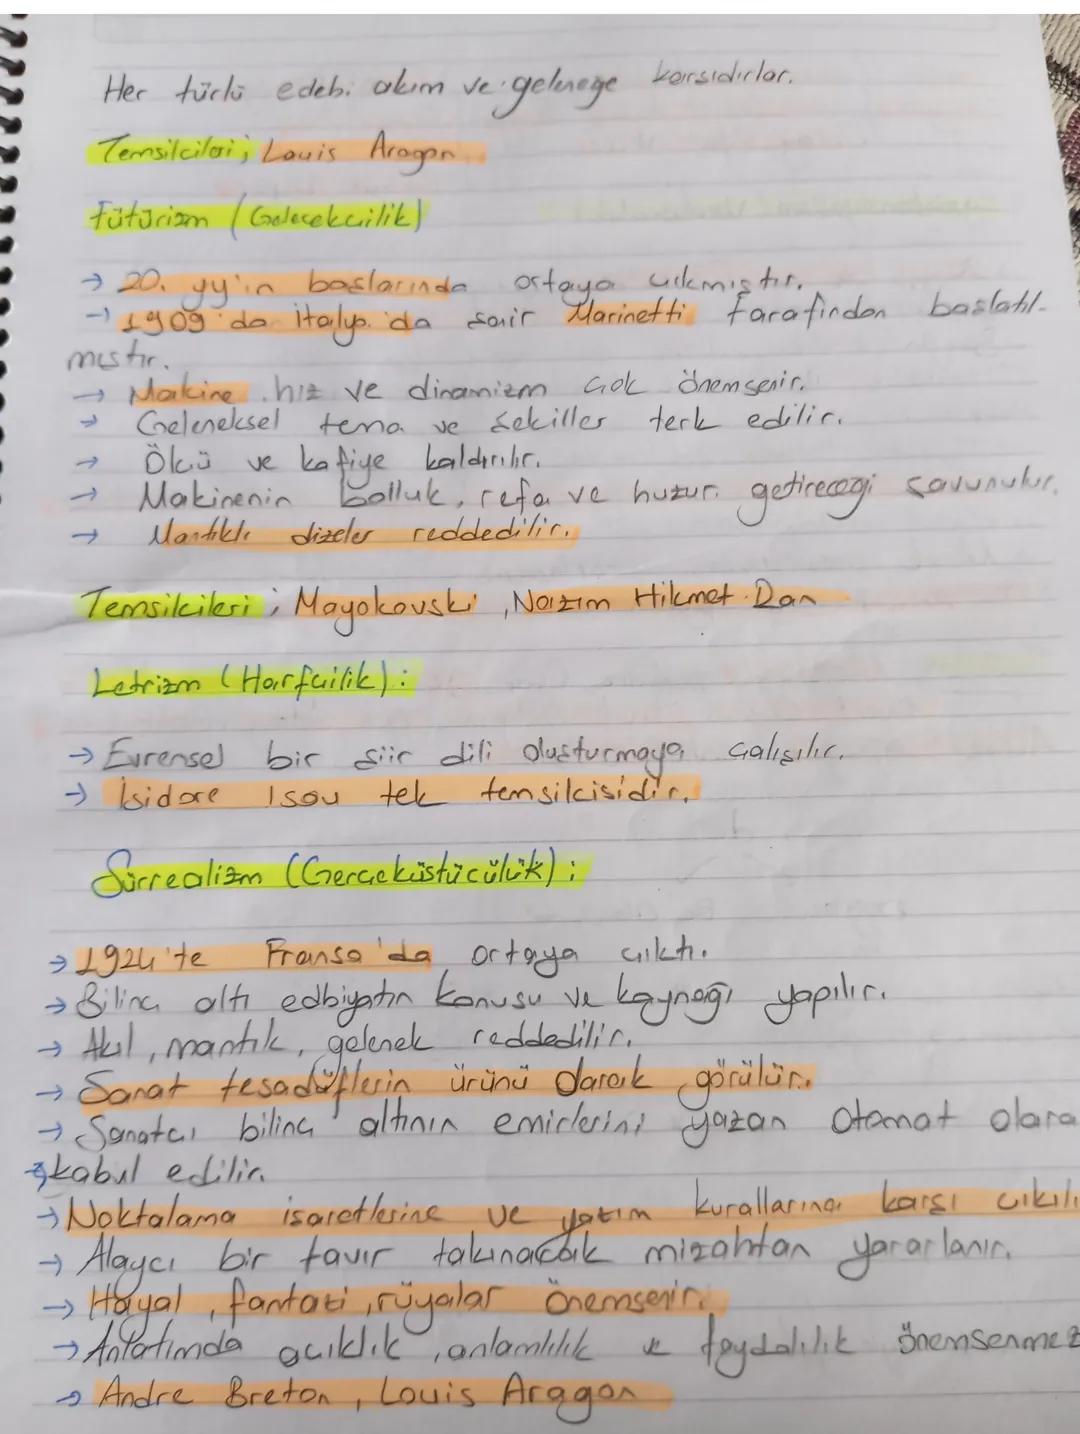 Her türlü edebi akım ve geleneğe karşıdırlar.
Temsilcileri; Louis Aragon
Fütürizm (Gelecekçilik)
→ 20. yy'ın başlarında ortaya çıkmıştır.
→ 1909'da İtalya'da şair Marinetti tarafından başlatıl-
mıştır.
→ Makine, hız ve dinamizm çok önemsenir.
→ Geleneksel tema ve şekiller terk edilir.
→ Ölçü ve kafiye kaldırılır.
→ Makinenin bolluk, refa ve huzur getireceği savunulur.
→ Mantıklı dizeler reddedilir.
Temsilcileri; Mayokovski, Nazım Hikmet Ran
Letrizm (Harfçilik):
→ Evrensel bir şiir dili oluşturmaya çalışılır.
→ İsidore Isou tek temsilcisidir.
Sürrealizm (Gerçeküstücülük):
→ 1924'te Fransa'da ortaya çıktı.
→ Bilinç altı edbiyatın konusu ve kaynağı yapılır.
→ Akıl, mantık, gelenek reddedilir.
→ Sanat tesadüflerin ürünü olarak görülür.
→ Sanatçı bilinç altının emirlerini yazan otomat olara
kabul edilir.
→ Noktalama işaretlerine ve yazım kurallarına karşı çıkılı
→ Alaycı bir tavır takınarak mizahtan yararlanır.
→ Hayal, fantazi, rüyalar önemsenir.
→ Anlatımda açıklık, anlamlılık ve faydalılık önemsenmez
→ Andre Breton, Louis Aragon